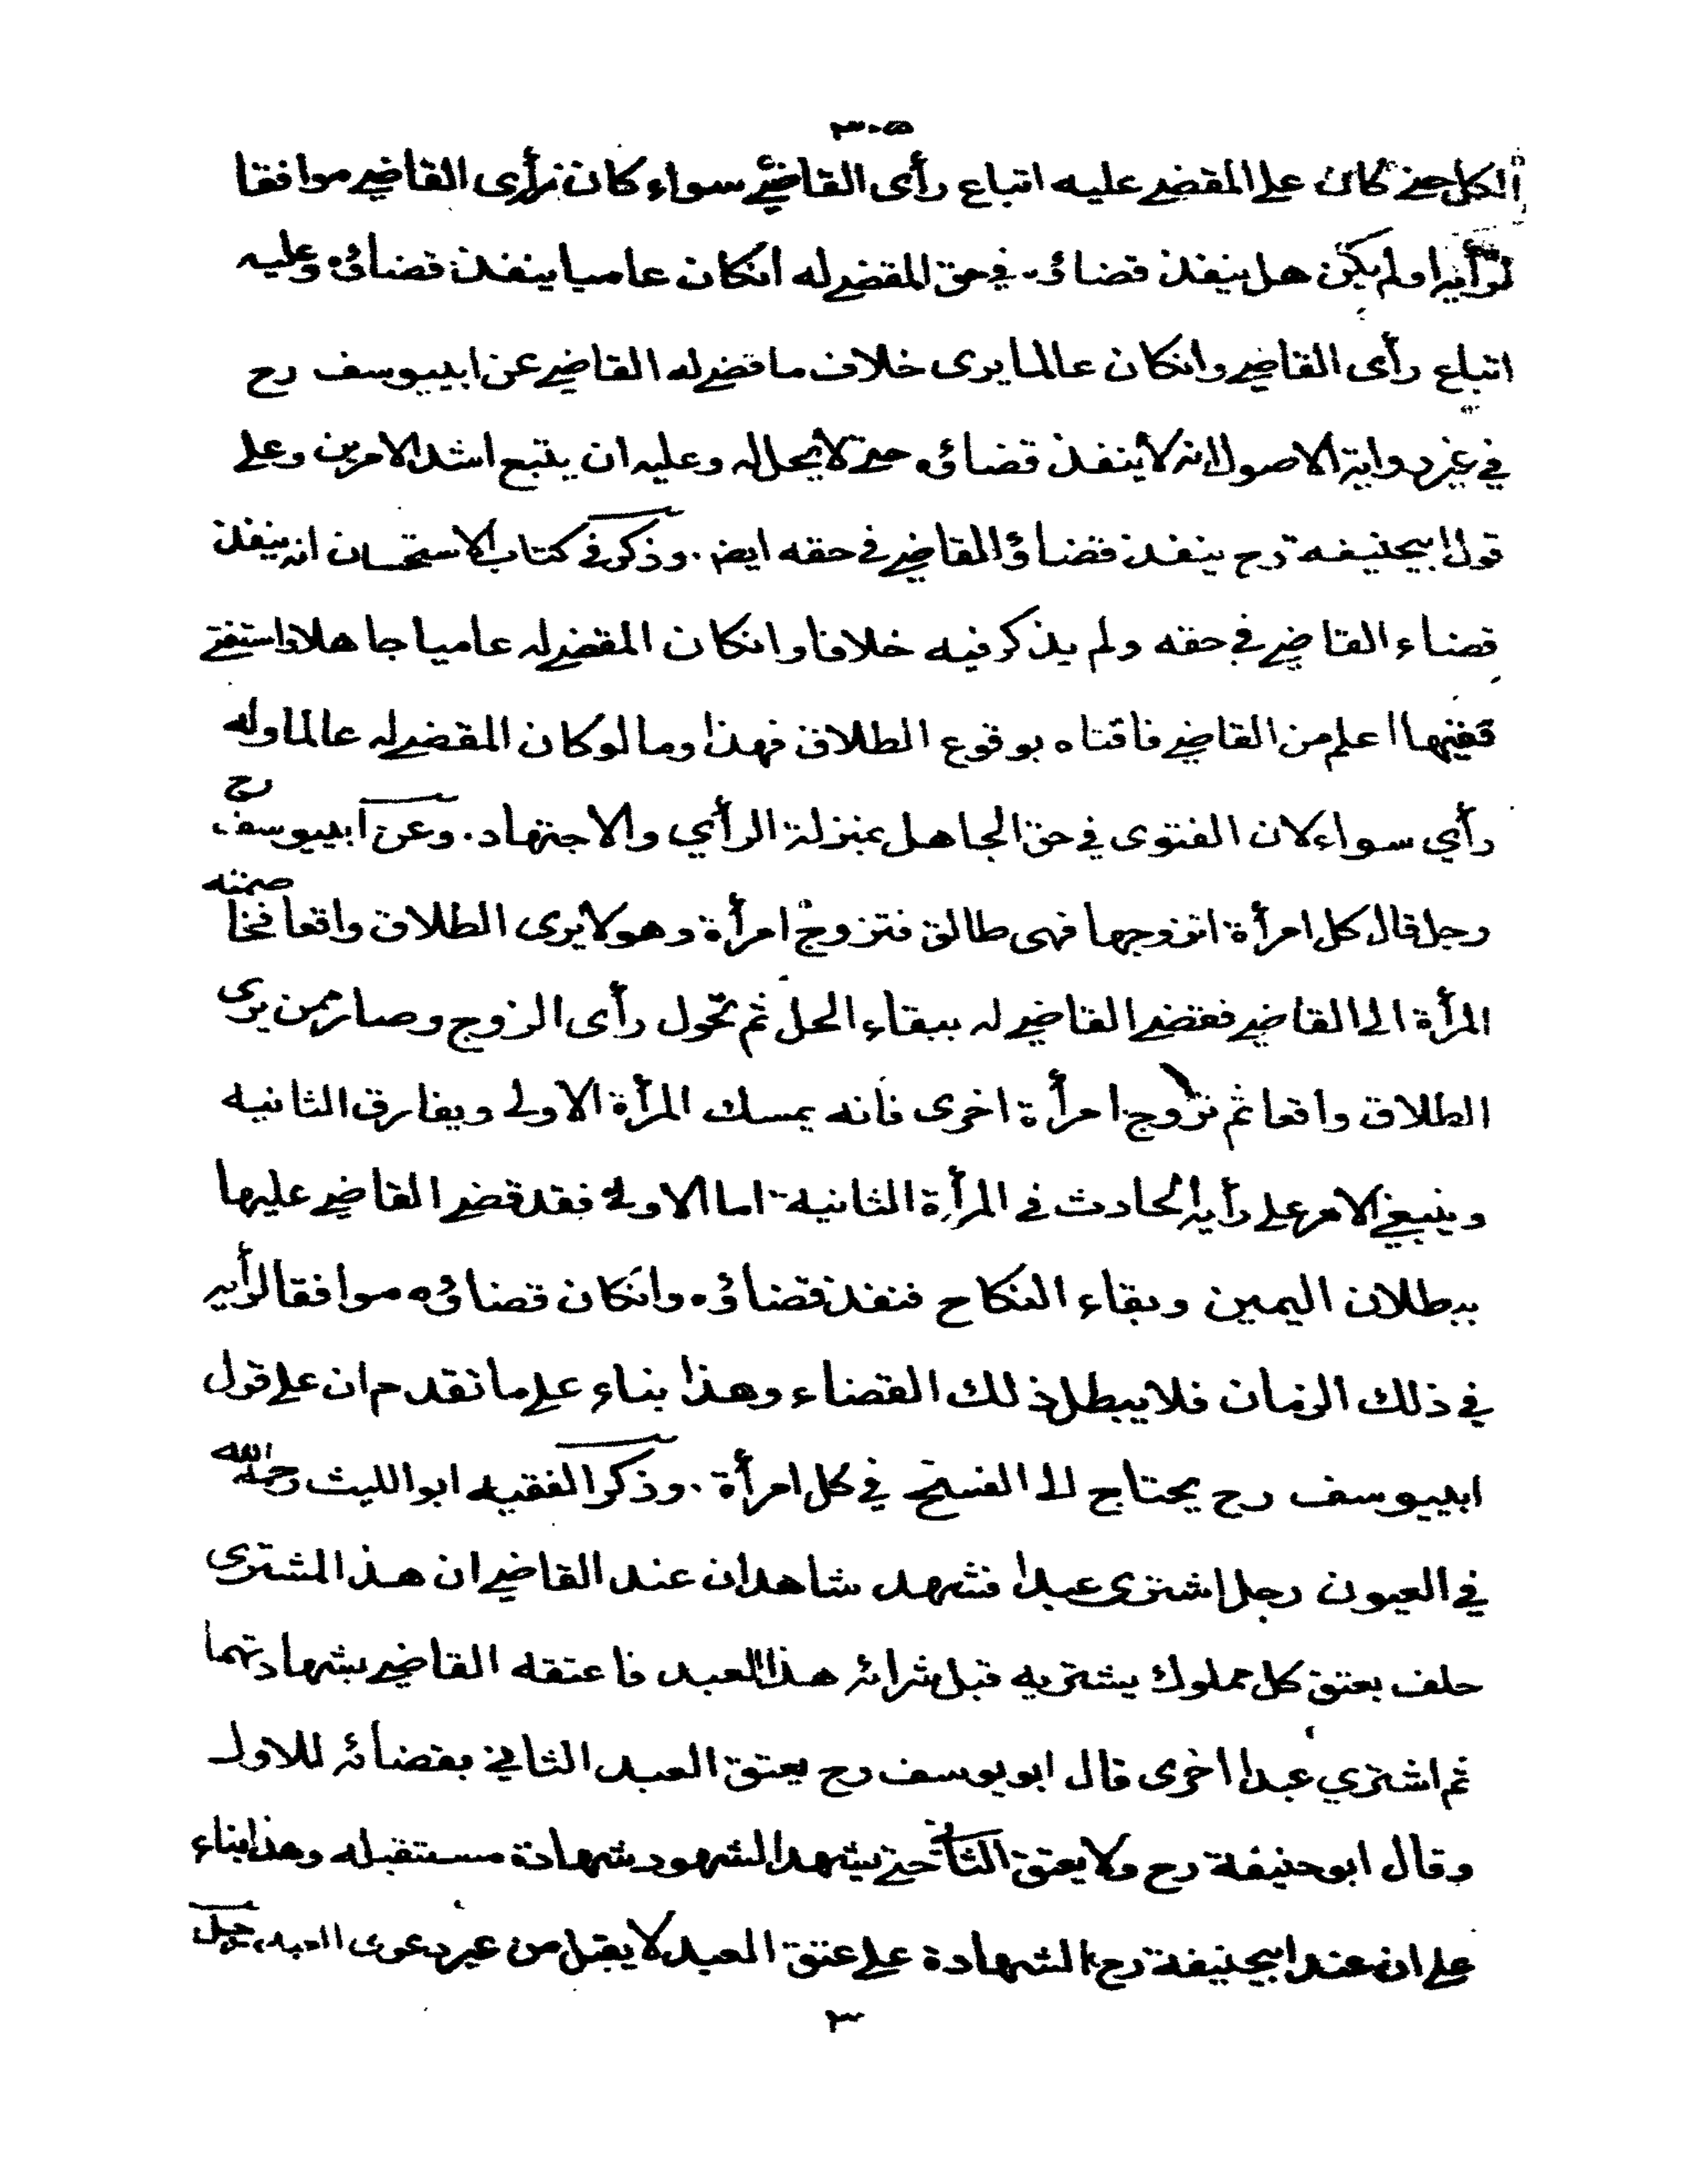 ٣٠٥
الكل حتى كان على المقضي عليه اتباع رأى القاضي سواء كان رأى القاضي موافقا
لرأيه او لم يكن هل ينفذ قضاؤه في حق المقضي له انكان عاميا ينفذ قضاؤه وعليه
اتباع رأى القاضي وانكان عالما يرى خلاف ما قضى له القاضي عن ابييوسف رح
في غير رواية الاصول انه لا ينفذ قضاؤه حتى لا يحل له وعليه ان يتبع اشد الامرين وعلى
قول ابيحنيفه رح ينفذ قضاؤ القاضي في حقه ايض . وذكر في كتاب الاستحسان انه ينفذ
قضاء القاضي في حقه ولم يذكر فيه خلافا وانكان المقضي له عاميا جاهلا واستفتى
فقيها اعلم من القاضي فافتاه بوقوع الطلاق فهذا وما لو كان المقضي له عالما وله
رأي سواء لان الفتوى في حق الجاهل بمنزلة الرأي والاجتهاد . وعن ابييوسف رح
رجل قال كل امرأة اتزوجها فهى طالق فتزوج امرأة وهو لا يرى الطلاق واقعا فخاصمته
المرأة الى القاضي فقضى القاضي له ببقاء الحل ثم تحول رأى الزوج وصار ممن يرى
الطلاق واقعا ثم تزوج امرأة اخرى فانه يمسك المرأة الاولى ويفارق الثانيه
وينبغي الامر على رأيه الحادث في المرأة الثانية اما الاولى فقد قضى القاضي عليها
ببطلان اليمين وبقاء النكاح فنفذ قضاؤه وانكان قضاؤه موافقا لرأيه
في ذلك الزمان فلا يبطل ذلك القضاء وهذا بناء على ما تقدم ان على قول
ابييوسف رح يحتاج الى الفسخ في كل امرأة . وذكر الفقيه ابو الليث رحمه الله
في العيون رجل اشترى عبدا فشهد شاهدان عند القاضي ان هذا المشترى
حلف بعتق كل مملوك يشتريه قبل شرائه هذا العبد فاعتقه القاضي بشهادتهما
ثم اشتري عبدا اخرى قال ابو يوسف رح يعتق العبد الثاني بقضائه للاول
وقال ابو حنيفة رح ولا يعتق الثاني حتى يشهد الشهود شهادة مستقبله وهذا بناء
على ان عند ابيحنيفة رح الشهادة على عتق العبد لا يقبل من غير دعوى العبد
٣